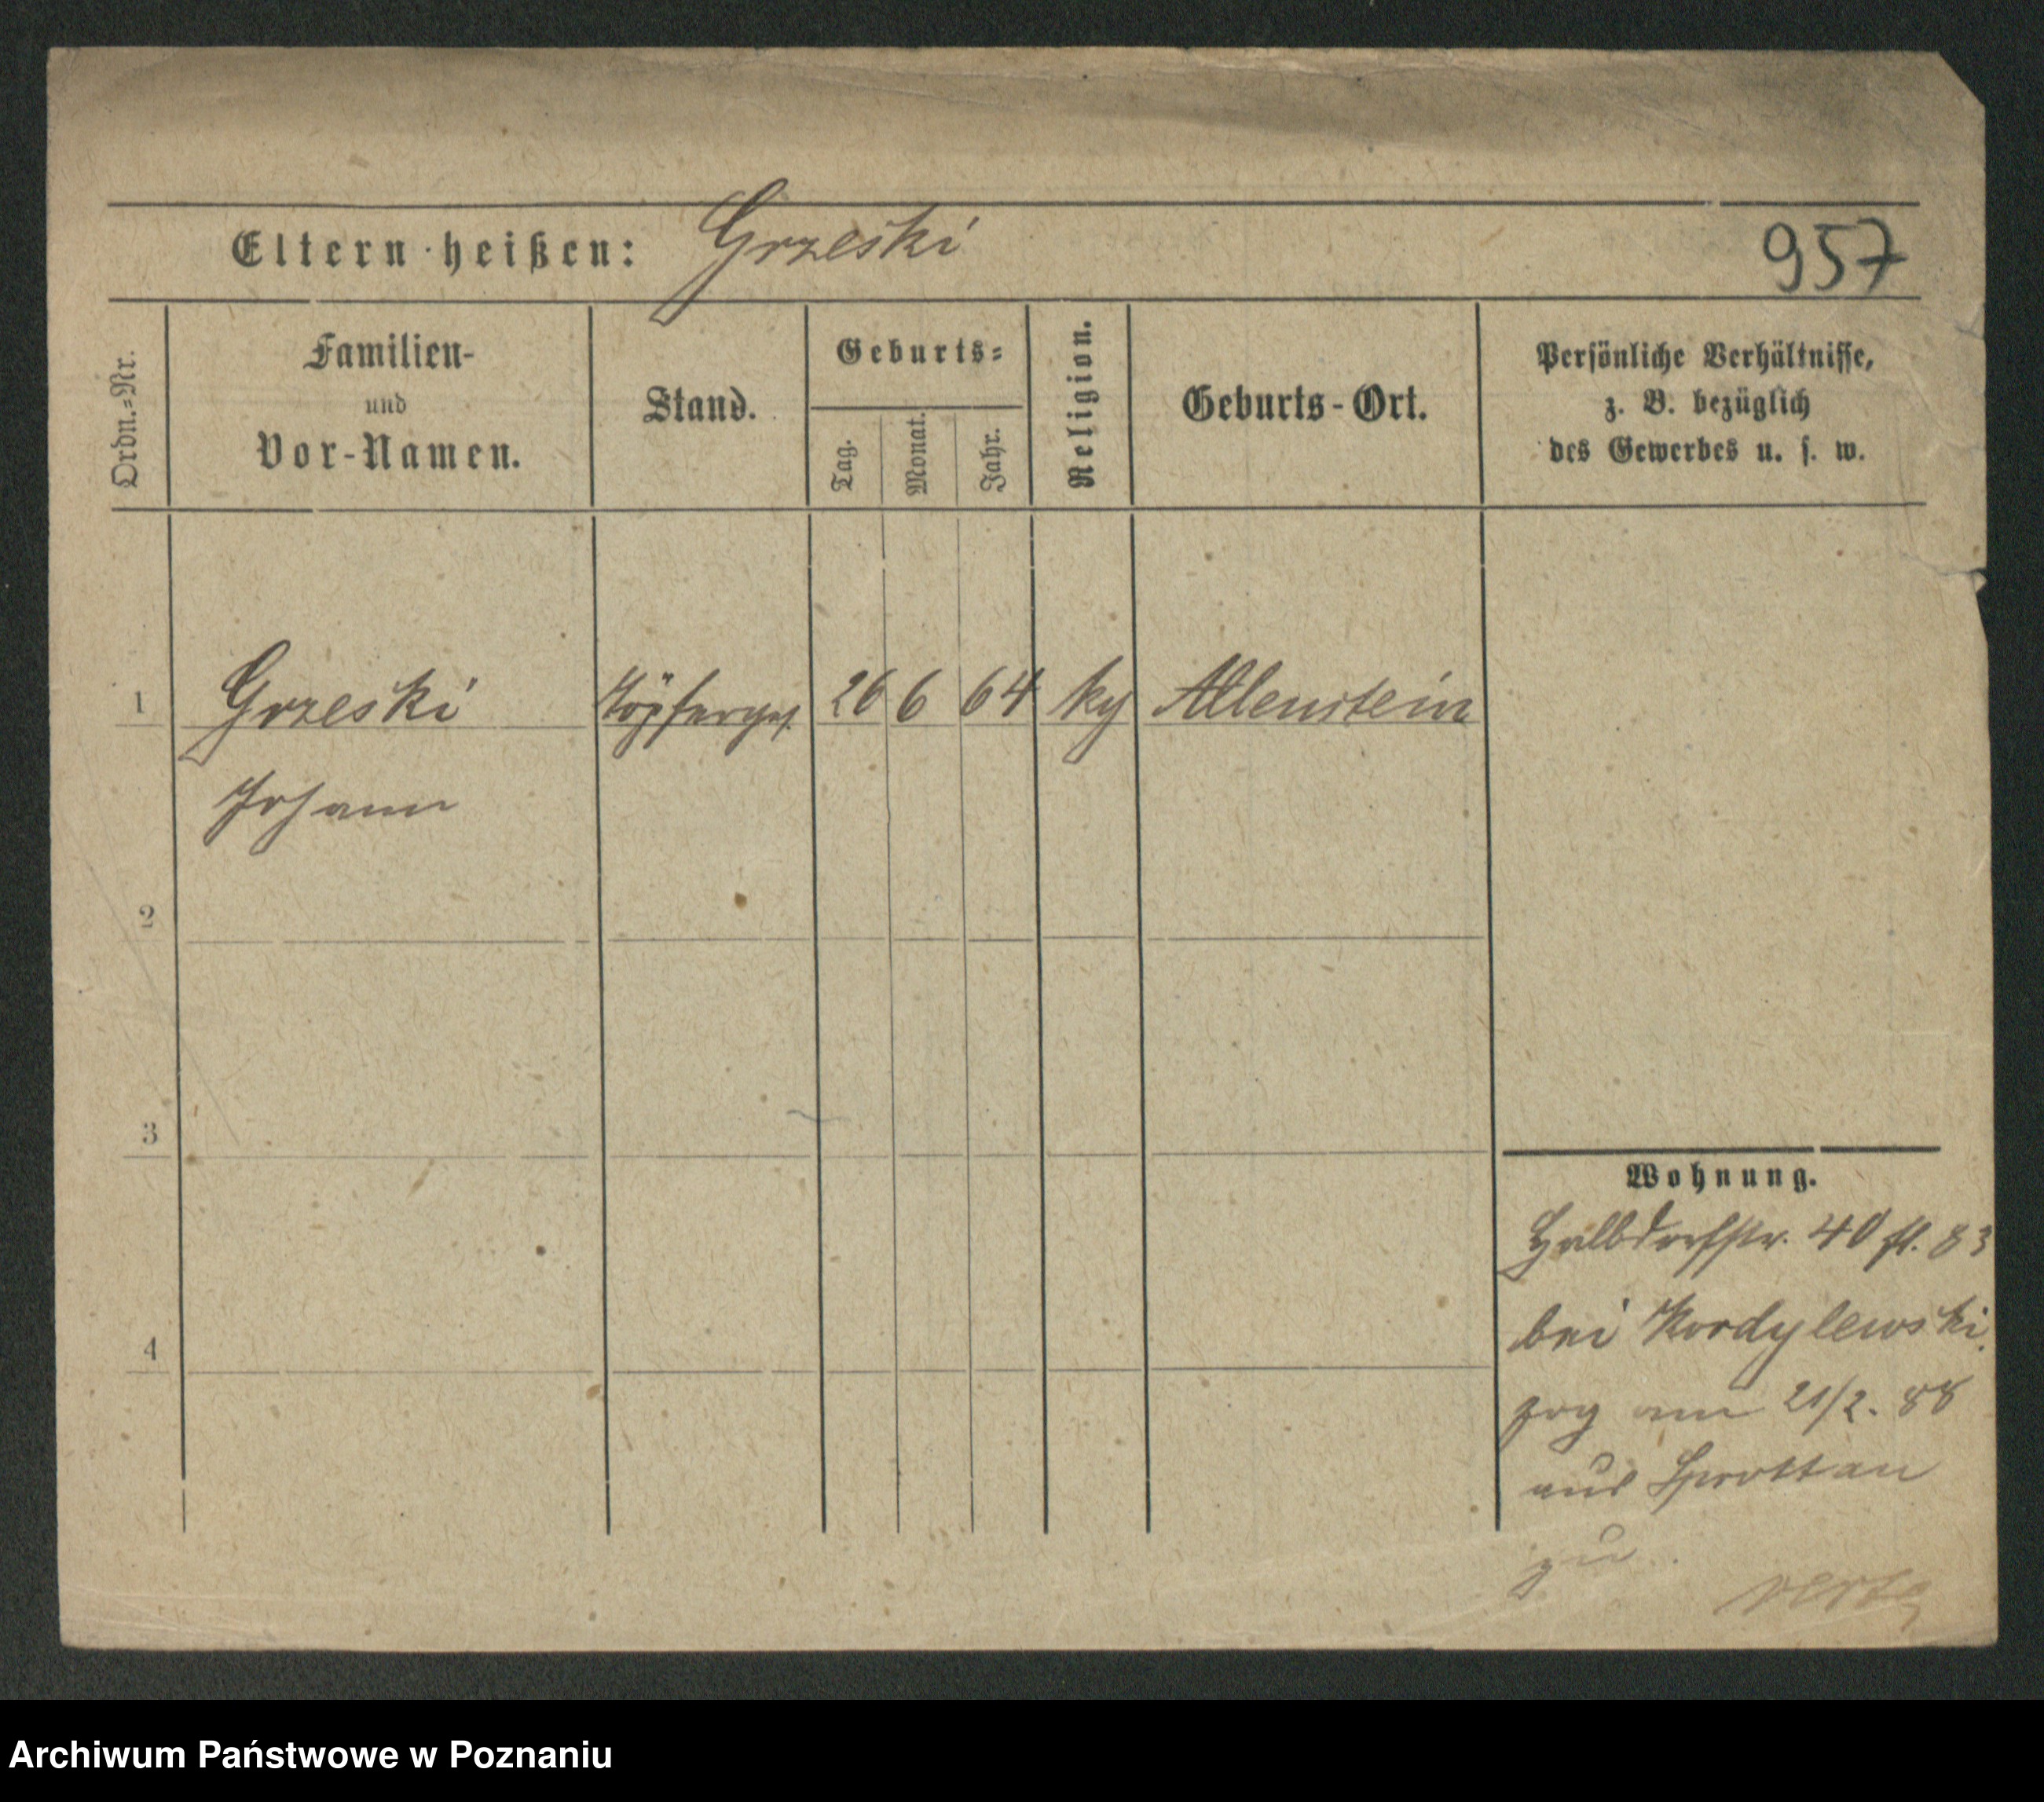 Eltern heißen: Grzeski
957
Ordn.=Nr.
Familien-
und
Vor-Namen.
Stand.
Geburts=
Tag.
Monat.
Jahr.
Religion.
Geburts-Ort.
Persönliche Verhältnisse,
z. B. bezüglich
des Gewerbes u. s. w.
1 Grzeski Töpferges. 26 6 64 Allenstein
Johann
2
3
4
Wohnung.
Halbdorfstr. 40
bei Kordylewski.
zog am 21/2. 88
aus Sprottau
zu
Archiwum Państwowe w Poznaniu